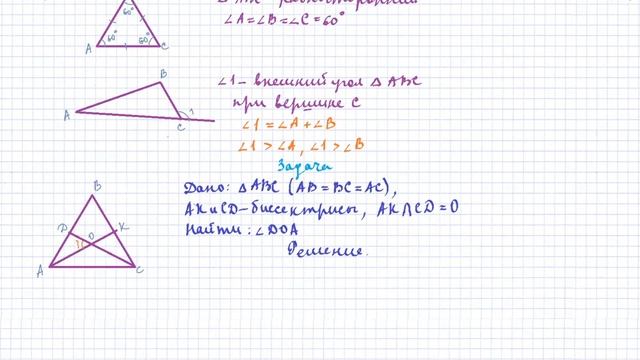 60°
60° 60°
A C
∠A=∠B=∠C=60°
B
A
C 1
∠1 - внешний угол △ABC
при вершине C
∠1 = ∠A + ∠B
∠1 > ∠A, ∠1 > ∠B
Задача
Дано: △ABC (AB = BC = AC),
AK и CD - биссектрисы, AK ∩ CD = O
Найти: ∠DOA
Решение.
B
D O K
A C